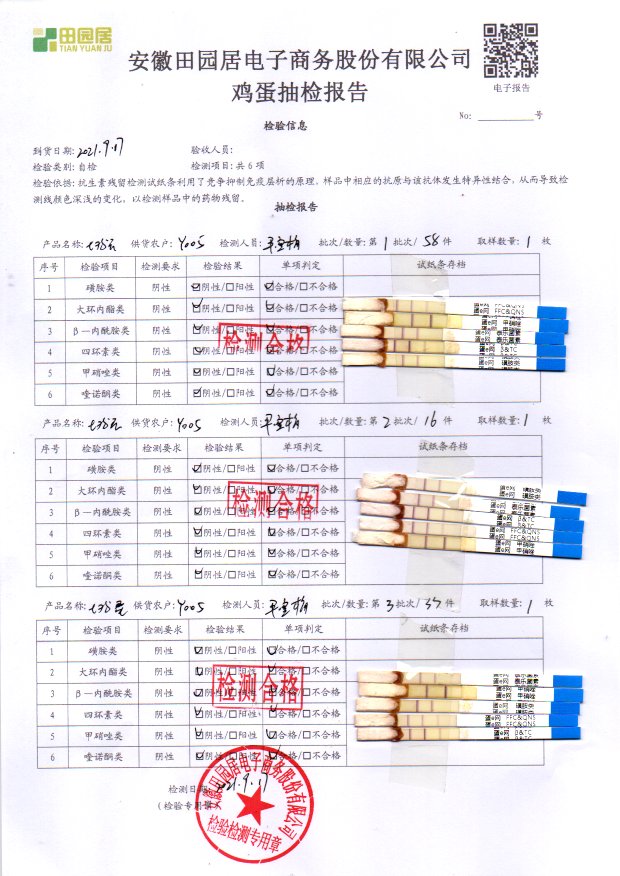 田园居
TIAN YUAN JU
安徽田园居电子商务股份有限公司
鸡蛋抽检报告
电子报告
No: 号
检验信息
到货日期: 2021.9.17 验收人员:
检验类别: 自检 检测项目: 共 6 项
检验依据: 抗生素残留检测试纸条利用了竞争抑制免疫层析的原理, 样品中相应的抗原与该抗体发生特异性结合, 从而导致检
测线颜色深浅的变化, 以检测样品中的药物残留。
抽检报告
产品名称: 供货农户: Y005 检测人员: 批次/数量: 第 1 批次/ 58 件 取样数量: 1 枚
序号 检验项目 检测要求 检验结果 单项判定 试纸条存档
1 磺胺类 阴性 ☑阴性/□阳性 ☑合格/□不合格
2 大环内酯类 阴性 ☑阴性/□阳性 ☑合格/□不合格
3 β一内酰胺类 阴性 ☑阴性/□阳性 ☑合格/□不合格
4 四环素类 阴性 ☑阴性/□阳性 ☑合格/□不合格
5 甲硝唑类 阴性 ☑阴性/□阳性 ☑合格/□不合格
6 喹诺酮类 阴性 ☑阴性/□阳性 ☑合格/□不合格
检测合格
蛋e网 FFC&QNS
蛋e网 甲硝唑
蛋e网 泰乐菌素
蛋e网 B&TC
蛋e网 磺胺类
产品名称: 供货农户: Y005 检测人员: 批次/数量: 第 2 批次/ 16 件 取样数量: 1 枚
序号 检验项目 检测要求 检验结果 单项判定 试纸条存档
1 磺胺类 阴性 ☑阴性/□阳性 ☑合格/□不合格
2 大环内酯类 阴性 ☑阴性/□阳性 ☑合格/□不合格
3 β一内酰胺类 阴性 ☑阴性/□阳性 ☑合格/□不合格
4 四环素类 阴性 ☑阴性/□阳性 ☑合格/□不合格
5 甲硝唑类 阴性 ☑阴性/□阳性 ☑合格/□不合格
6 喹诺酮类 阴性 ☑阴性/□阳性 ☑合格/□不合格
检测合格
蛋e网 磺胺类
蛋e网 泰乐菌素
蛋e网 B&TC
蛋e网 FFC&QNS
蛋e网 甲硝唑
产品名称: 供货农户: Y005 检测人员: 批次/数量: 第 3 批次/ 件 取样数量: 1 枚
序号 检验项目 检测要求 检验结果 单项判定 试纸条存档
1 磺胺类 阴性 ☑阴性/□阳性 ☑合格/□不合格
2 大环内酯类 阴性 ☑阴性/□阳性 ☑合格/□不合格
3 β一内酰胺类 阴性 ☑阴性/□阳性 ☑合格/□不合格
4 四环素类 阴性 ☑阴性/□阳性 ☑合格/□不合格
5 甲硝唑类 阴性 ☑阴性/□阳性 ☑合格/□不合格
6 喹诺酮类 阴性 ☑阴性/□阳性 ☑合格/□不合格
检测合格
蛋e网 泰乐菌素
蛋e网 甲硝唑
蛋e网 磺胺类
蛋e网 FFC&QNS
蛋e网 B&TC
检测日期: 2021.9.17
(检验专用章)
安徽田园居电子商务股份有限公司
检验检测专用章